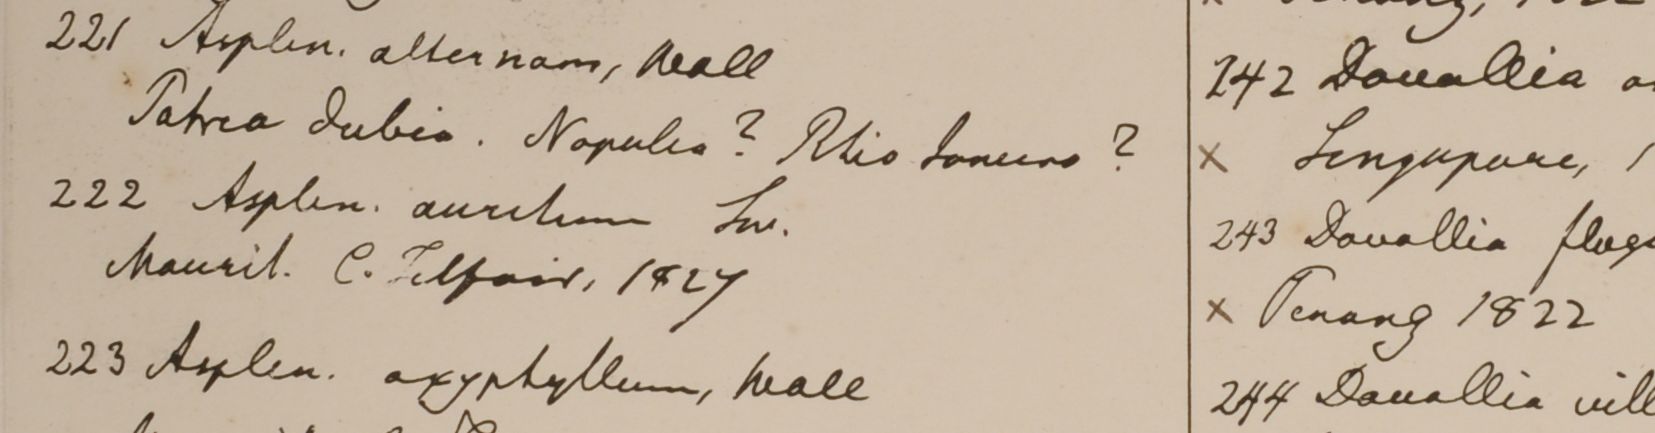 221 Asplen. alternans, Wall
Patria dubia. Napalia? Rhio Janeiro?
222 Asplen. auritum Sw.
Maurit. C. Telfair, 1827
223 Asplen. oxyphyllum, Wall
242 Davallia
x Singapore, 1
243 Davallia
x Penang 1822
244 Davallia vill